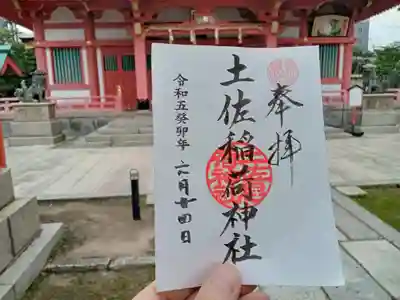 奉拝
土佐稲荷神社
令和五癸卯年 六月廿四日